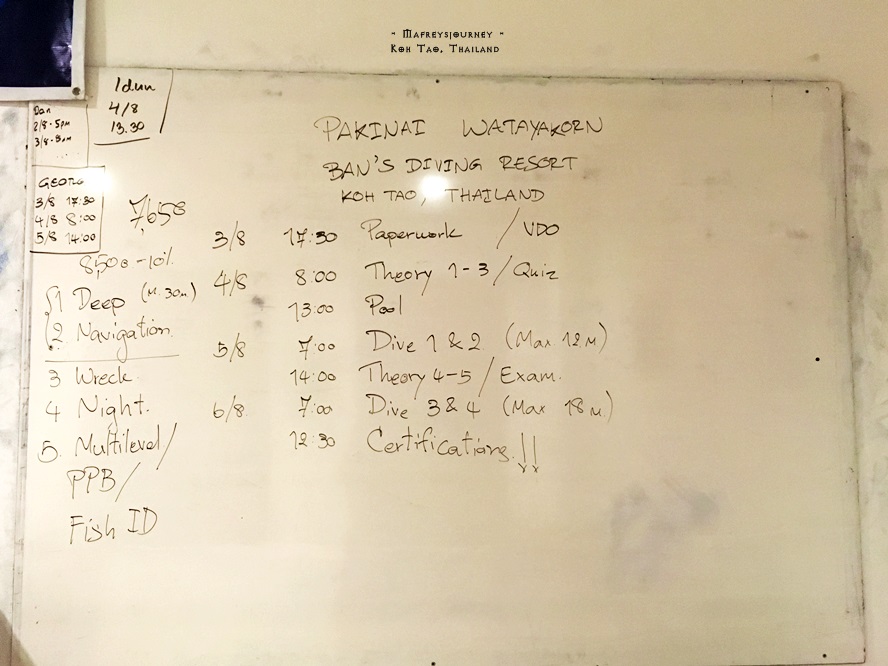 ~ Mafreysjourney ~
Koh Tao, Thailand
Idun
4/8
13.30
Dan
2/8 - 5pm
GEORG
3/8 17:30
4/8 8:00
5/8 14:00
PAKINAI WATAYAKORN
BAN'S DIVING RESORT
KOH TAO, THAILAND
3/8 17:30 Paperwork / VDO
4/8 8:00 Theory 1-3 / Quiz
13:00 Pool
5/8 7:00 Dive 1 & 2 (Max 12 M)
14:00 Theory 4-5 / Exam.
6/8 7:00 Dive 3 & 4 (Max 18 M)
12:30 Certifications!!
1 Deep (M. 30m)
2 Navigation
3 Wreck
4 Night.
5. Multilevel/
PPB/
Fish ID